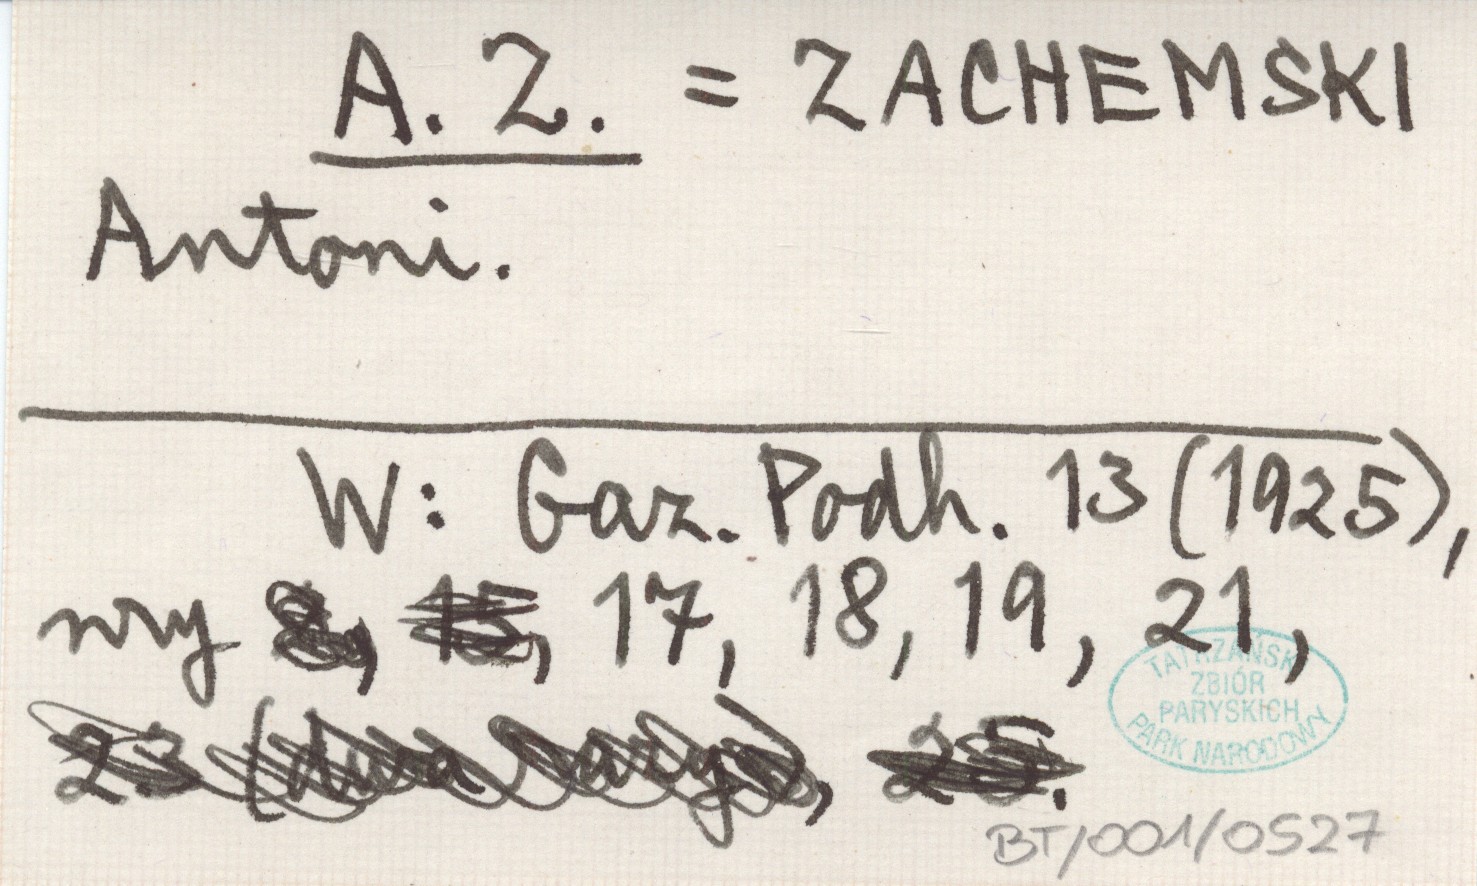 A. Z. = ZACHEMSKI
Antoni.
W: Gaz. Podh. 13 (1925),
nry 8, 15, 17, 18, 19, 21,
23 (dwa razy), 25.
TATRZAŃSKI
ZBIÓR
PARYSKICH
PARK NARODOWY
BT/001/0527